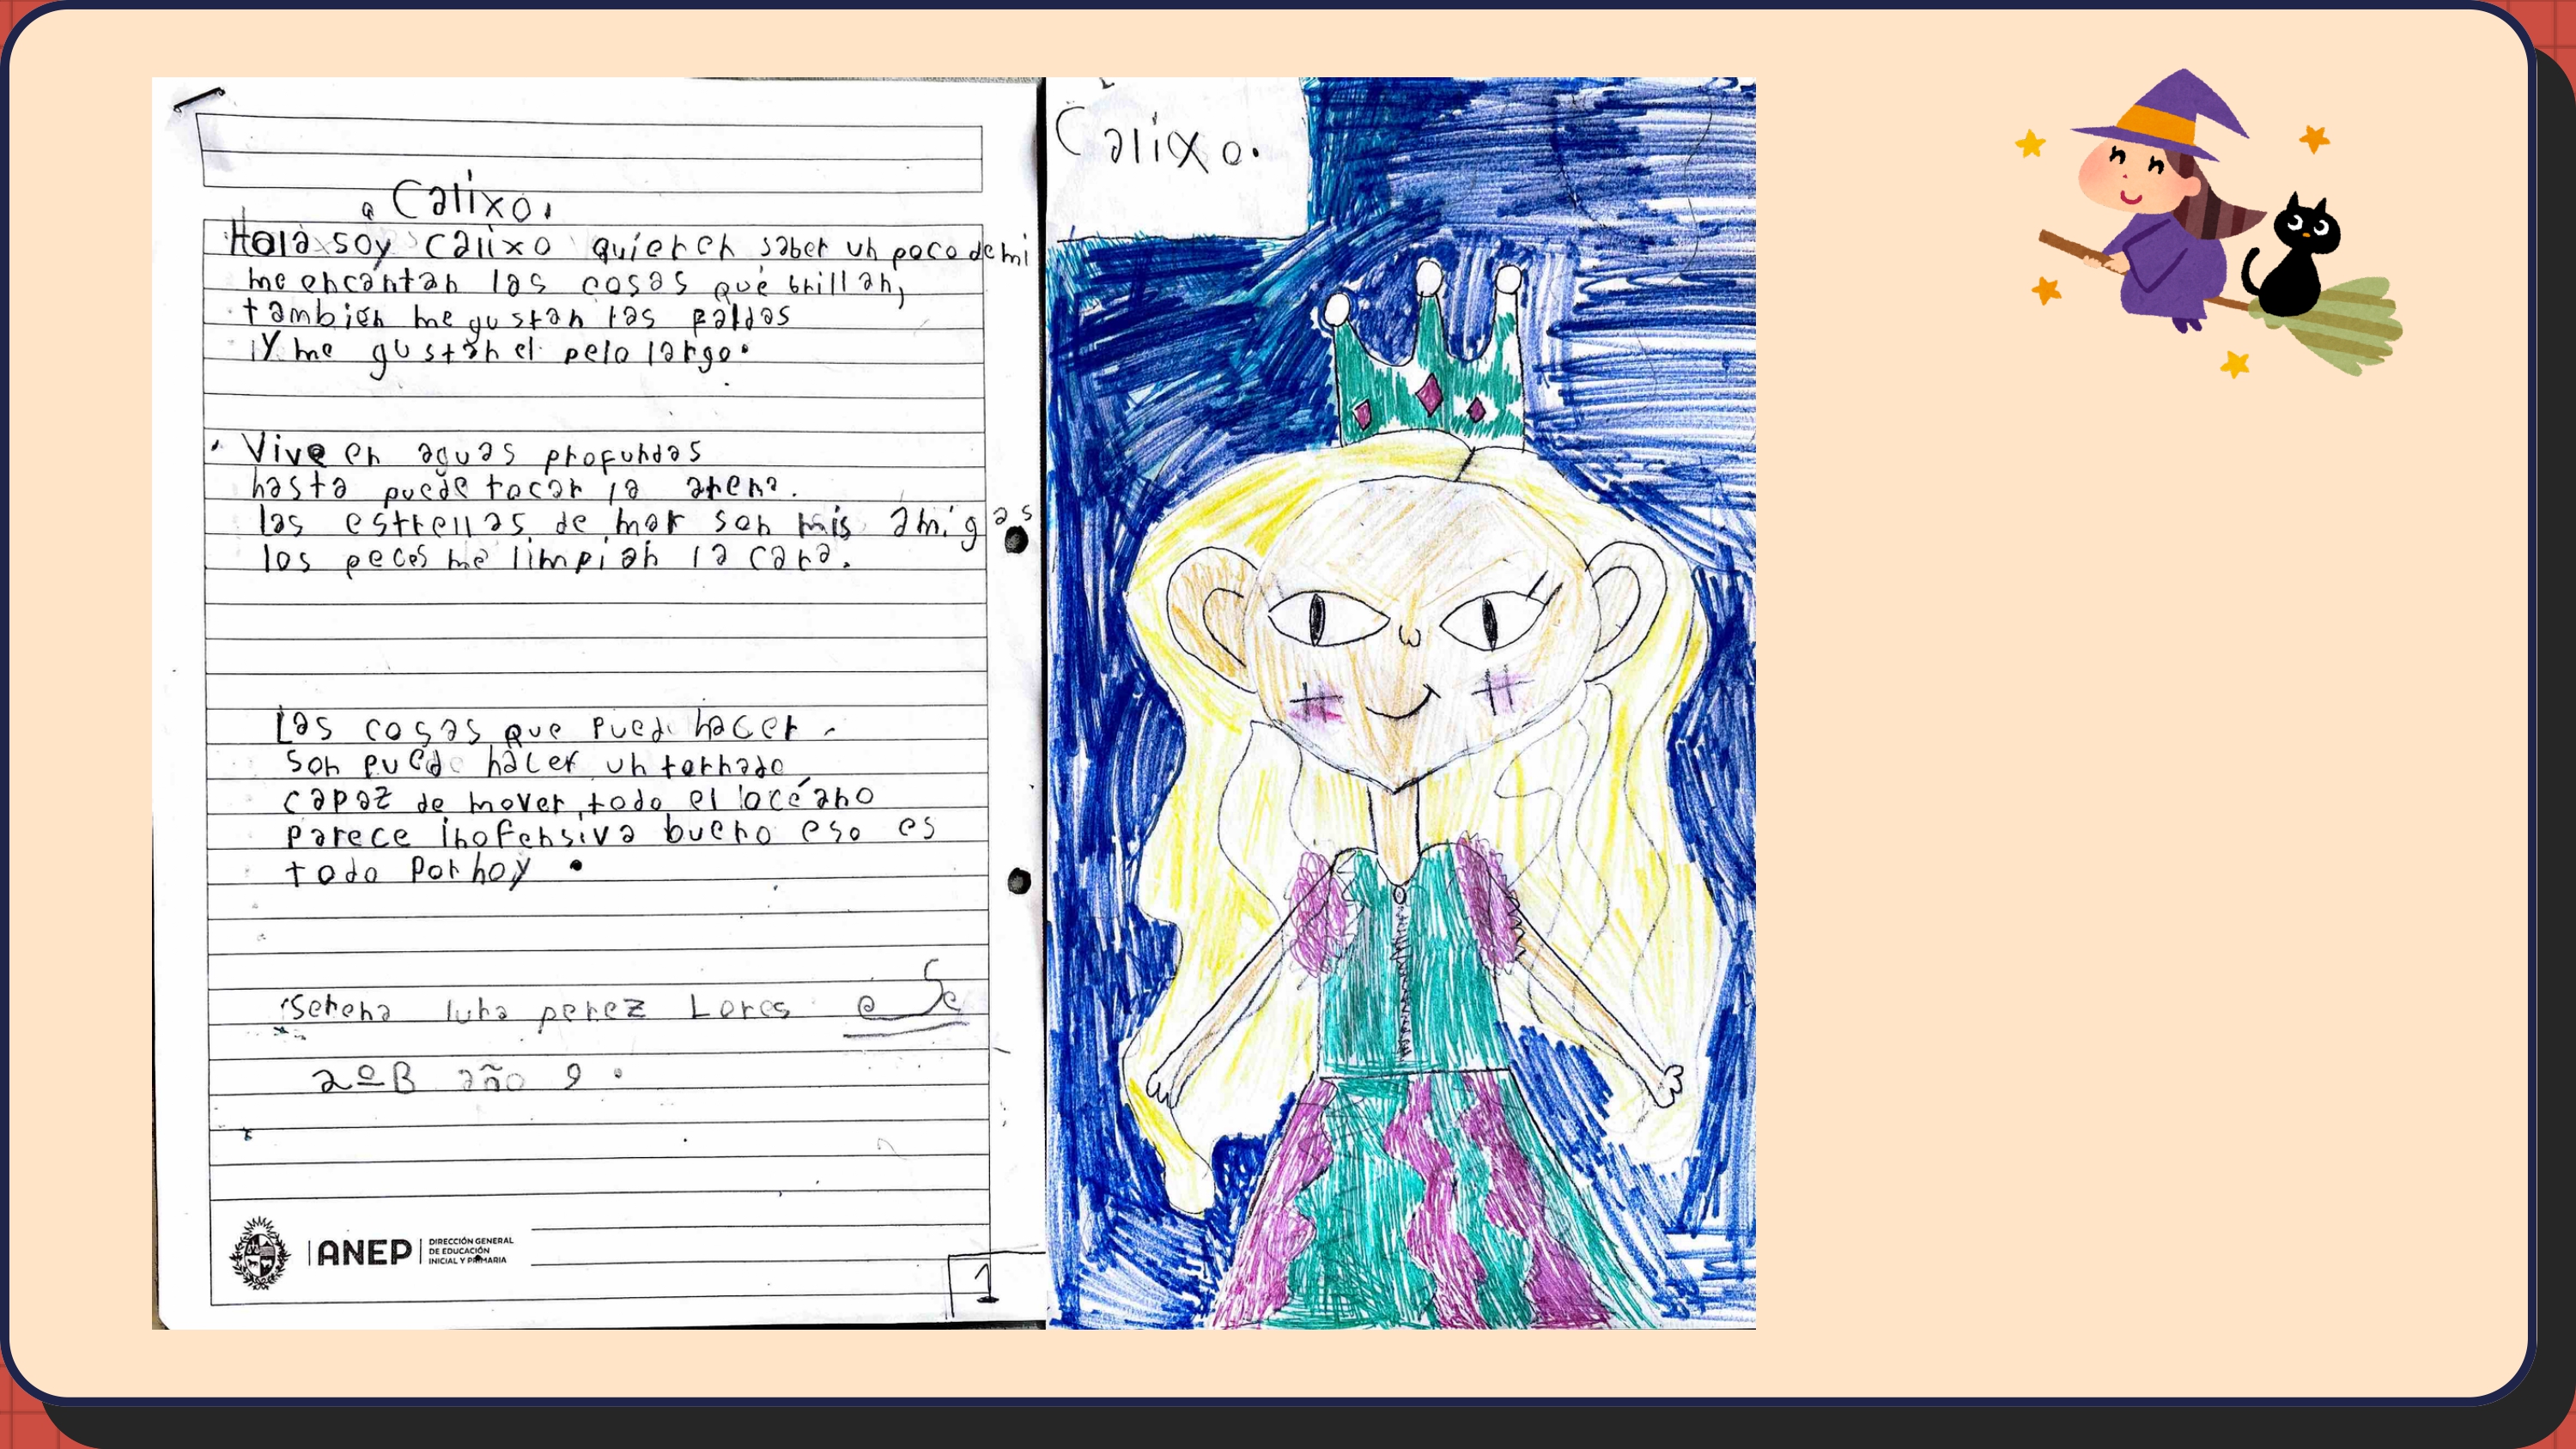 Calixo.
Hola soy Calixo quieren saber un poco de mi
me encantan las cosas que brillan,
también me gustan las faldas
Y me gustan el pelo largo.
Vive en aguas profundas
hasta puede tocar la arena.
las estrellas de mar son mis amigas
los peces me limpian la cara.
Las cosas que puede hacer
son puede hacer un tornado
capaz de mover todo el océano
parece inofensiva bueno eso es
todo por hoy.
Serena luna perez Lores
2ºB año 9.
ANEP
DIRECCIÓN GENERAL
DE EDUCACIÓN
INICIAL Y PRIMARIA
1
Calixo.